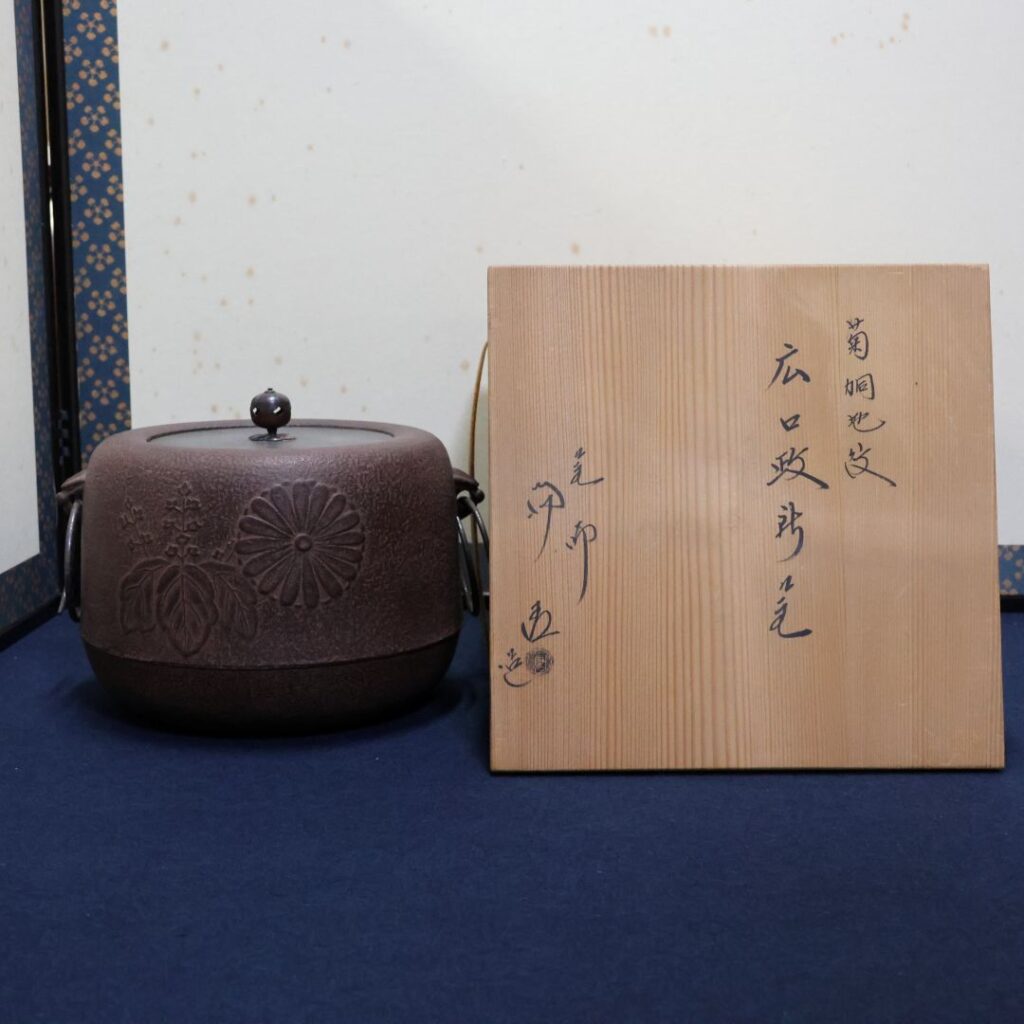 菊桐地紋
広口政所釜
釜師
造